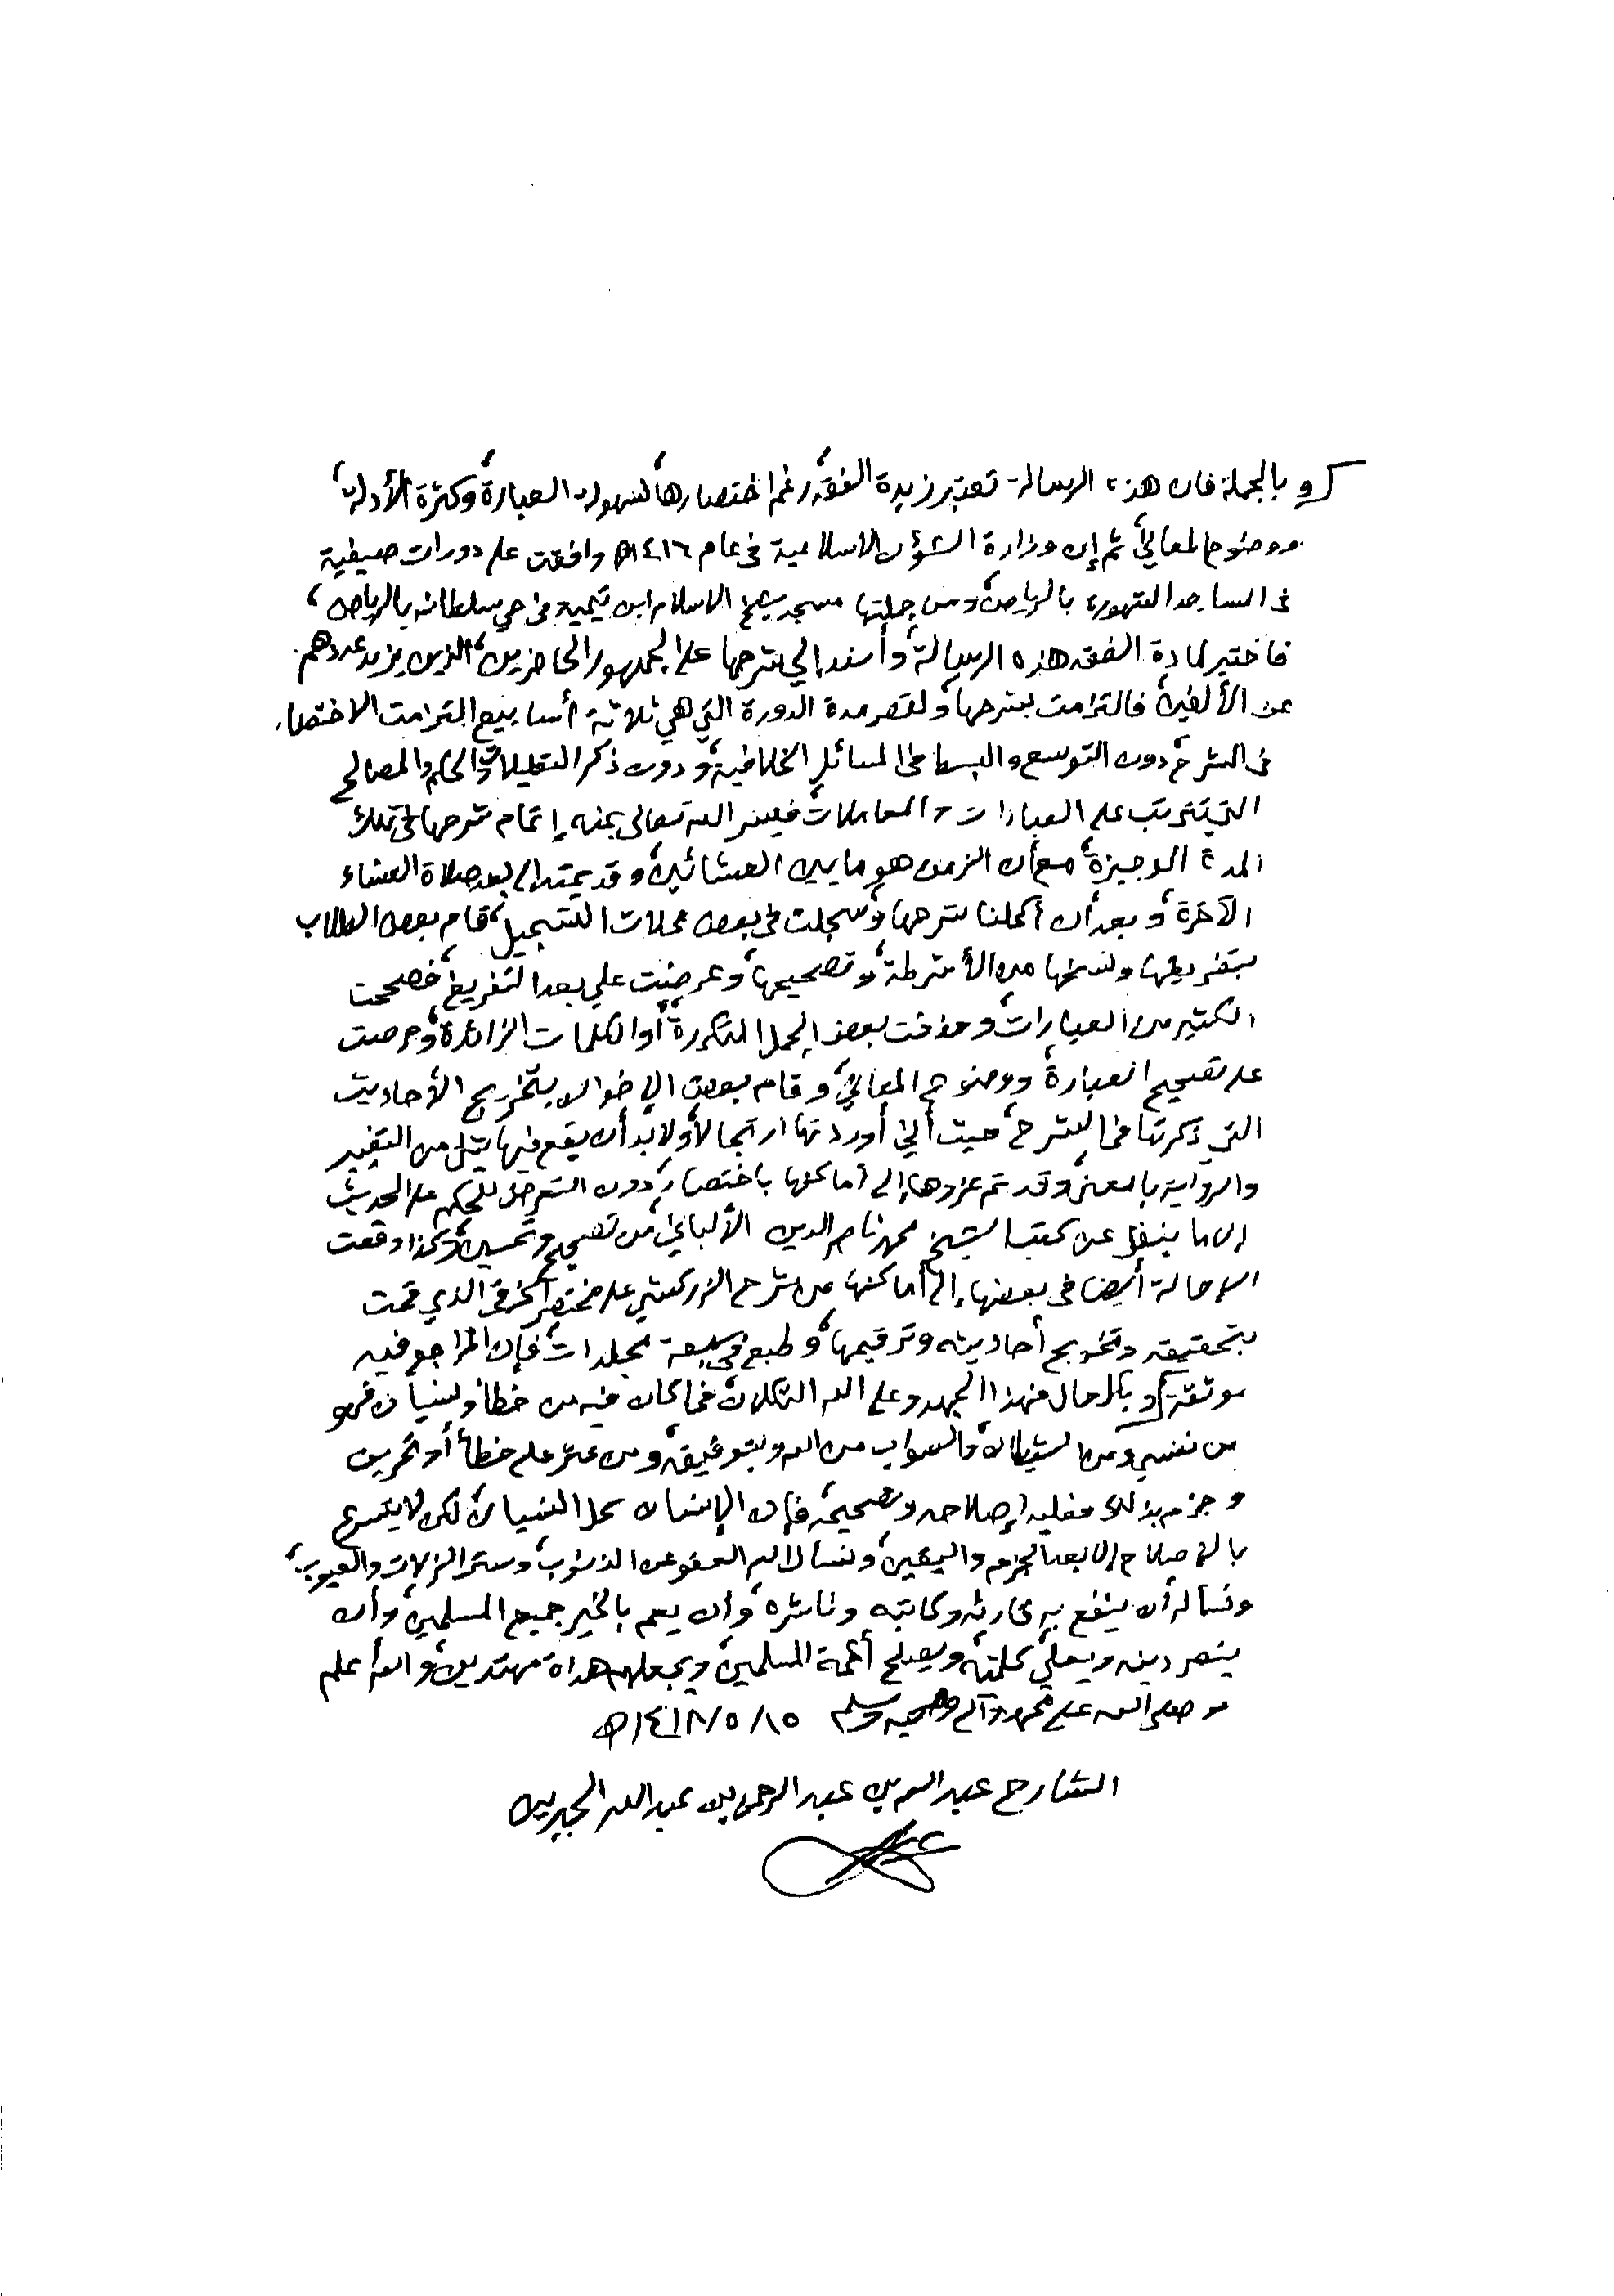 وبالجملة فإن هذه الرسالة تعتبر زبدة الفقه، رغم اختصارها، لسهولة العبارة، وكثرة الأدلة،
ووضوح المعاني، ثم إن وزارة الشؤون الاسلامية في عام ١٤١٦هـ وافقت على دورات صيفية
في المساجد المشهورة بالرياض، ومن جملتها مسجد شيخ الاسلام ابن تيمية في حي سلطانه بالرياض،
فاختير لمادة الفقه هذه الرسالة، وأسند إلي شرحها على الجمهور الحاضرين، الذين يزيد عددهم
عن الألفين، فالتزمت بشرحها، ولقصر مدة الدورة التي هي ثلاثة أسابيع التزمت الاختصار
في الشرح، دون التوسع والبسط في المسائل الخلافية، ودون ذكر التعليلات، والحكم والمصالح
التي تترتب على العبادات والمعاملات، فيسر الله تعالى بمنه إتمام شرحها في تلك
المدة الوجيزة، مع أن الزمن هو ما بين العشائين، وقد يمتد إلى بعد صلاة العشاء
الآخرة، وبعد أن أكملنا شرحها، وسجلت في بعض محلات التسجيل، قام بعض الطلاب
بتفريغها ونسخها من الأشرطة، وتصحيحها، وعرضت علي بعد التفريغ، فصححت
الكثير من العبارات، وحذفت بعض الجمل المتكررة، أو الكلمات الزائدة، وحرصت
على تصحيح العبارة، ووضوح المعاني، وقام بعض الإخوان بتخريج الأحاديث
التي ذكرتها في الشرح، حيث أني أوردتها ارتجالا، ولابد أن يقع فيها شيء من التغيير
والرواية بالمعنى، وقد تم عزوها إلى أماكنها باختصار، دون التعرض للحكم على الحديث
إلا ما ينقل عن كتب الشيخ محمد ناصر الدين الألباني، من تصحيح وتحسين، وكذا وقعت
الإحالة أيضا في بعضها إلى أماكنها من شرح الزركشي على مختصر الخرقي الذي قمت
بتحقيقه وتخريج أحاديثه وترقيمها، وطبع في سبعة مجلدات، فإن المراجع فيه
موثقة، وبكل حال فهذا الجهد وعلى الله التكلان، فما كان فيه من خطأ ونسيان فهو
من نفسي ومن الشيطان، والصواب من الله وبتوفيقه، ومن عثر على خطأ أو تحريف
وجزم بذلك فعليه إصلاحه وتصحيحه، فإن الإنسان محل النسيان، لكن لا يتسرع
بالإصلاح إلا بعد الجزم واليقين، ونسأل الله العفو عن الذنوب، وستر الزلات والعيوب،
ونسأله أن ينفع به قارئه وكاتبه وناشره، وأن يعم بالخير جميع المسلمين، وأن
ينصر دينه ويعلي كلمته، ويصلح أئمة المسلمين، ويجعلهم هداة مهتدين، والله أعلم
وصلى الله على محمد وآله وصحبه وسلم ١٤١٨/٥/١٥هـ
الشارح عبد الله بن عبد الرحمن بن عبد الله الجبرين